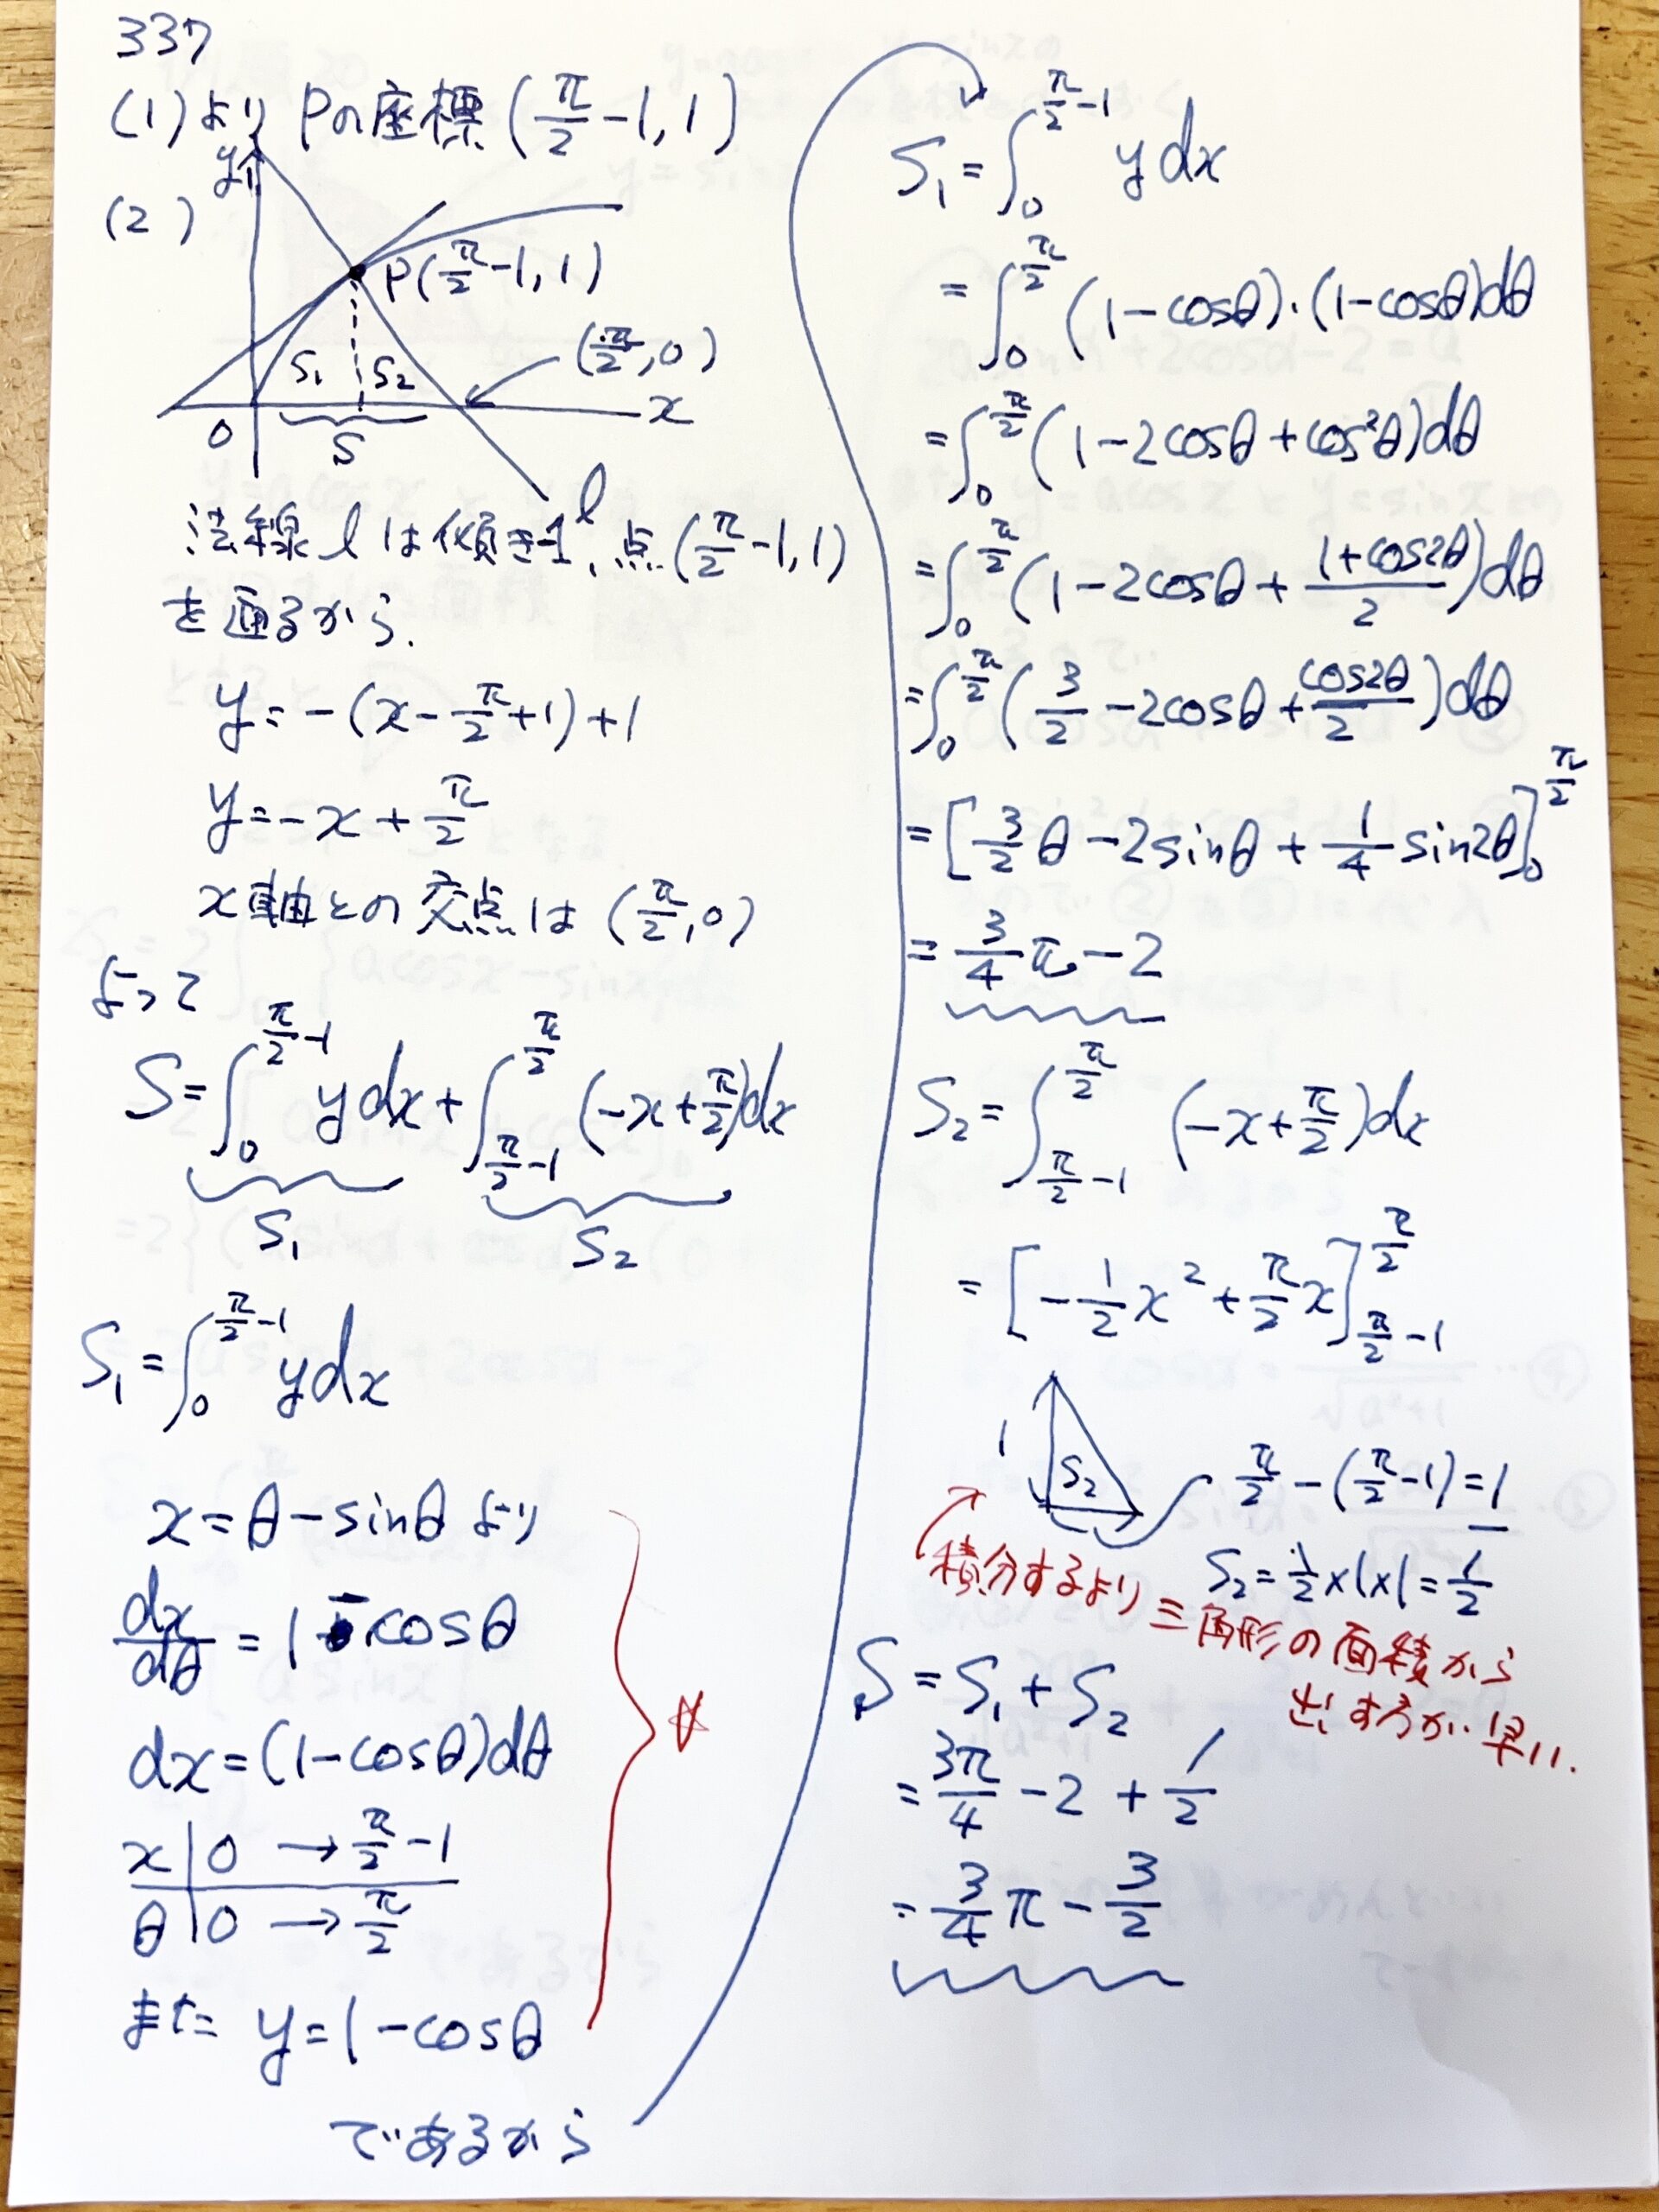 337
(1)より Pの座標(π/2-1, 1)
(2)
y
P(π/2-1, 1)
(π/2, 0)
S₁ S₂
O S x
l
法線lは傾き-1、点(π/2-1, 1)
を通るから.
y=-(x-π/2+1)+1
y=-x+π/2
x軸との交点は(π/2, 0)
よって
S=∫₀^(π/2-1) y dx+∫_(π/2-1)^(π/2) (-x+π/2)dx
S₁ S₂
S₁=∫₀^(π/2-1) y dx
x=θ-sinθ より
dx/dθ=1-cosθ
dx=(1-cosθ)dθ
x|0 → π/2-1
θ|0 → π/2
また y=1-cosθ
であるから
☆
S₁=∫₀^(π/2-1) y dx
=∫₀^(π/2) (1-cosθ)·(1-cosθ)dθ
=∫₀^(π/2) (1-2cosθ+cos²θ)dθ
=∫₀^(π/2) (1-2cosθ+(1+cos2θ)/2)dθ
=∫₀^(π/2) (3/2-2cosθ+cos2θ/2)dθ
=[3/2θ-2sinθ+1/4 sin2θ]₀^(π/2)
=3/4π-2
S₂=∫_(π/2-1)^(π/2) (-x+π/2)dx
=[-1/2x²+π/2x]_(π/2-1)^(π/2)
1 S₂ π/2-(π/2-1)=1
S₂=1/2×1×1=1/2
積分するより三角形の面積から
出す方が早い.
S=S₁+S₂
=3π/4-2+1/2
=3/4π-3/2